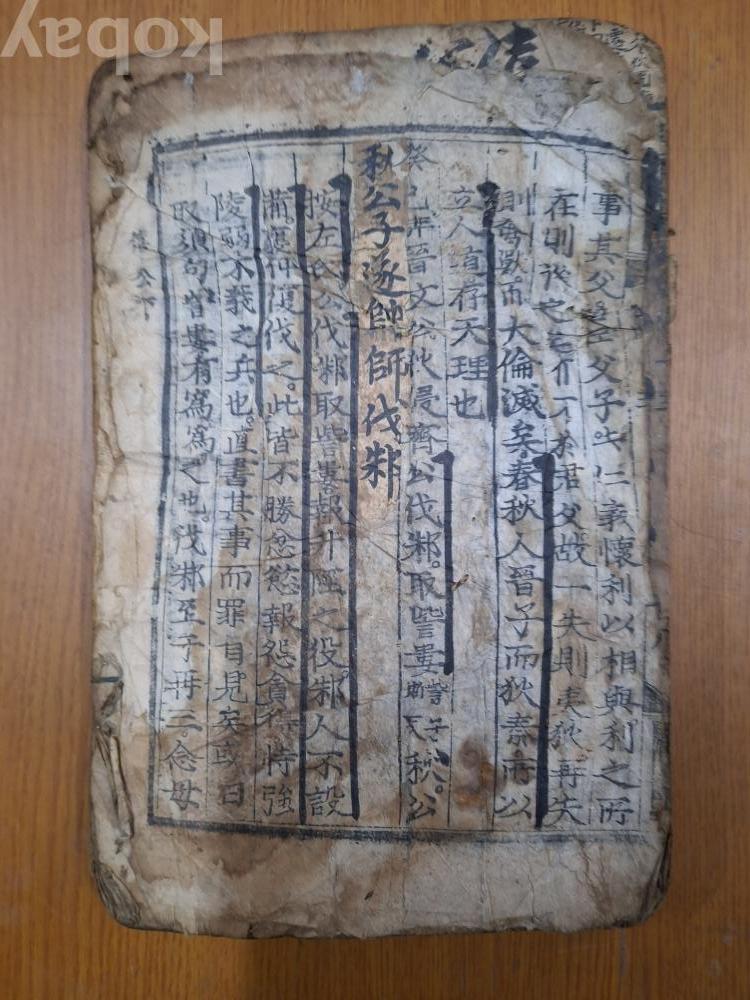 事其父子父子失仁義懷利以相與利之所
在則從之不君父故一失則夷狄再失
則禽獸而大倫滅矣春秋人晉子而狄秦所以
立人道存天理也
癸巳年晉文公狄侵齊公伐邾。取訾婁秋。公
秋公子遂帥師伐邾
按左氏公伐邾取訾婁報升陘之役邾人不設
備襄仲復伐之。此皆不勝忿慾報怨貪得恃強
陵弱不義之兵也。直書其事而罪自見矣或曰
取須句訾婁有爲爲之也。伐邾至于再三。念母
kobay